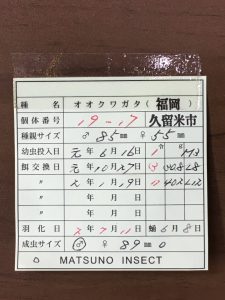 種名 オオクワガタ(福岡)
個体番号 19-17 久留米市
種親サイズ ♂ 85mm ♀ 55mm
幼虫投入日 元年6月16日
餌交換日 元年10月27日
〃 年1月19日
〃 年 月 日
羽化日 2年7月11日 蛹6月8日
成虫サイズ ♂ ♀ 89mm 0
MATSUNO INSECT